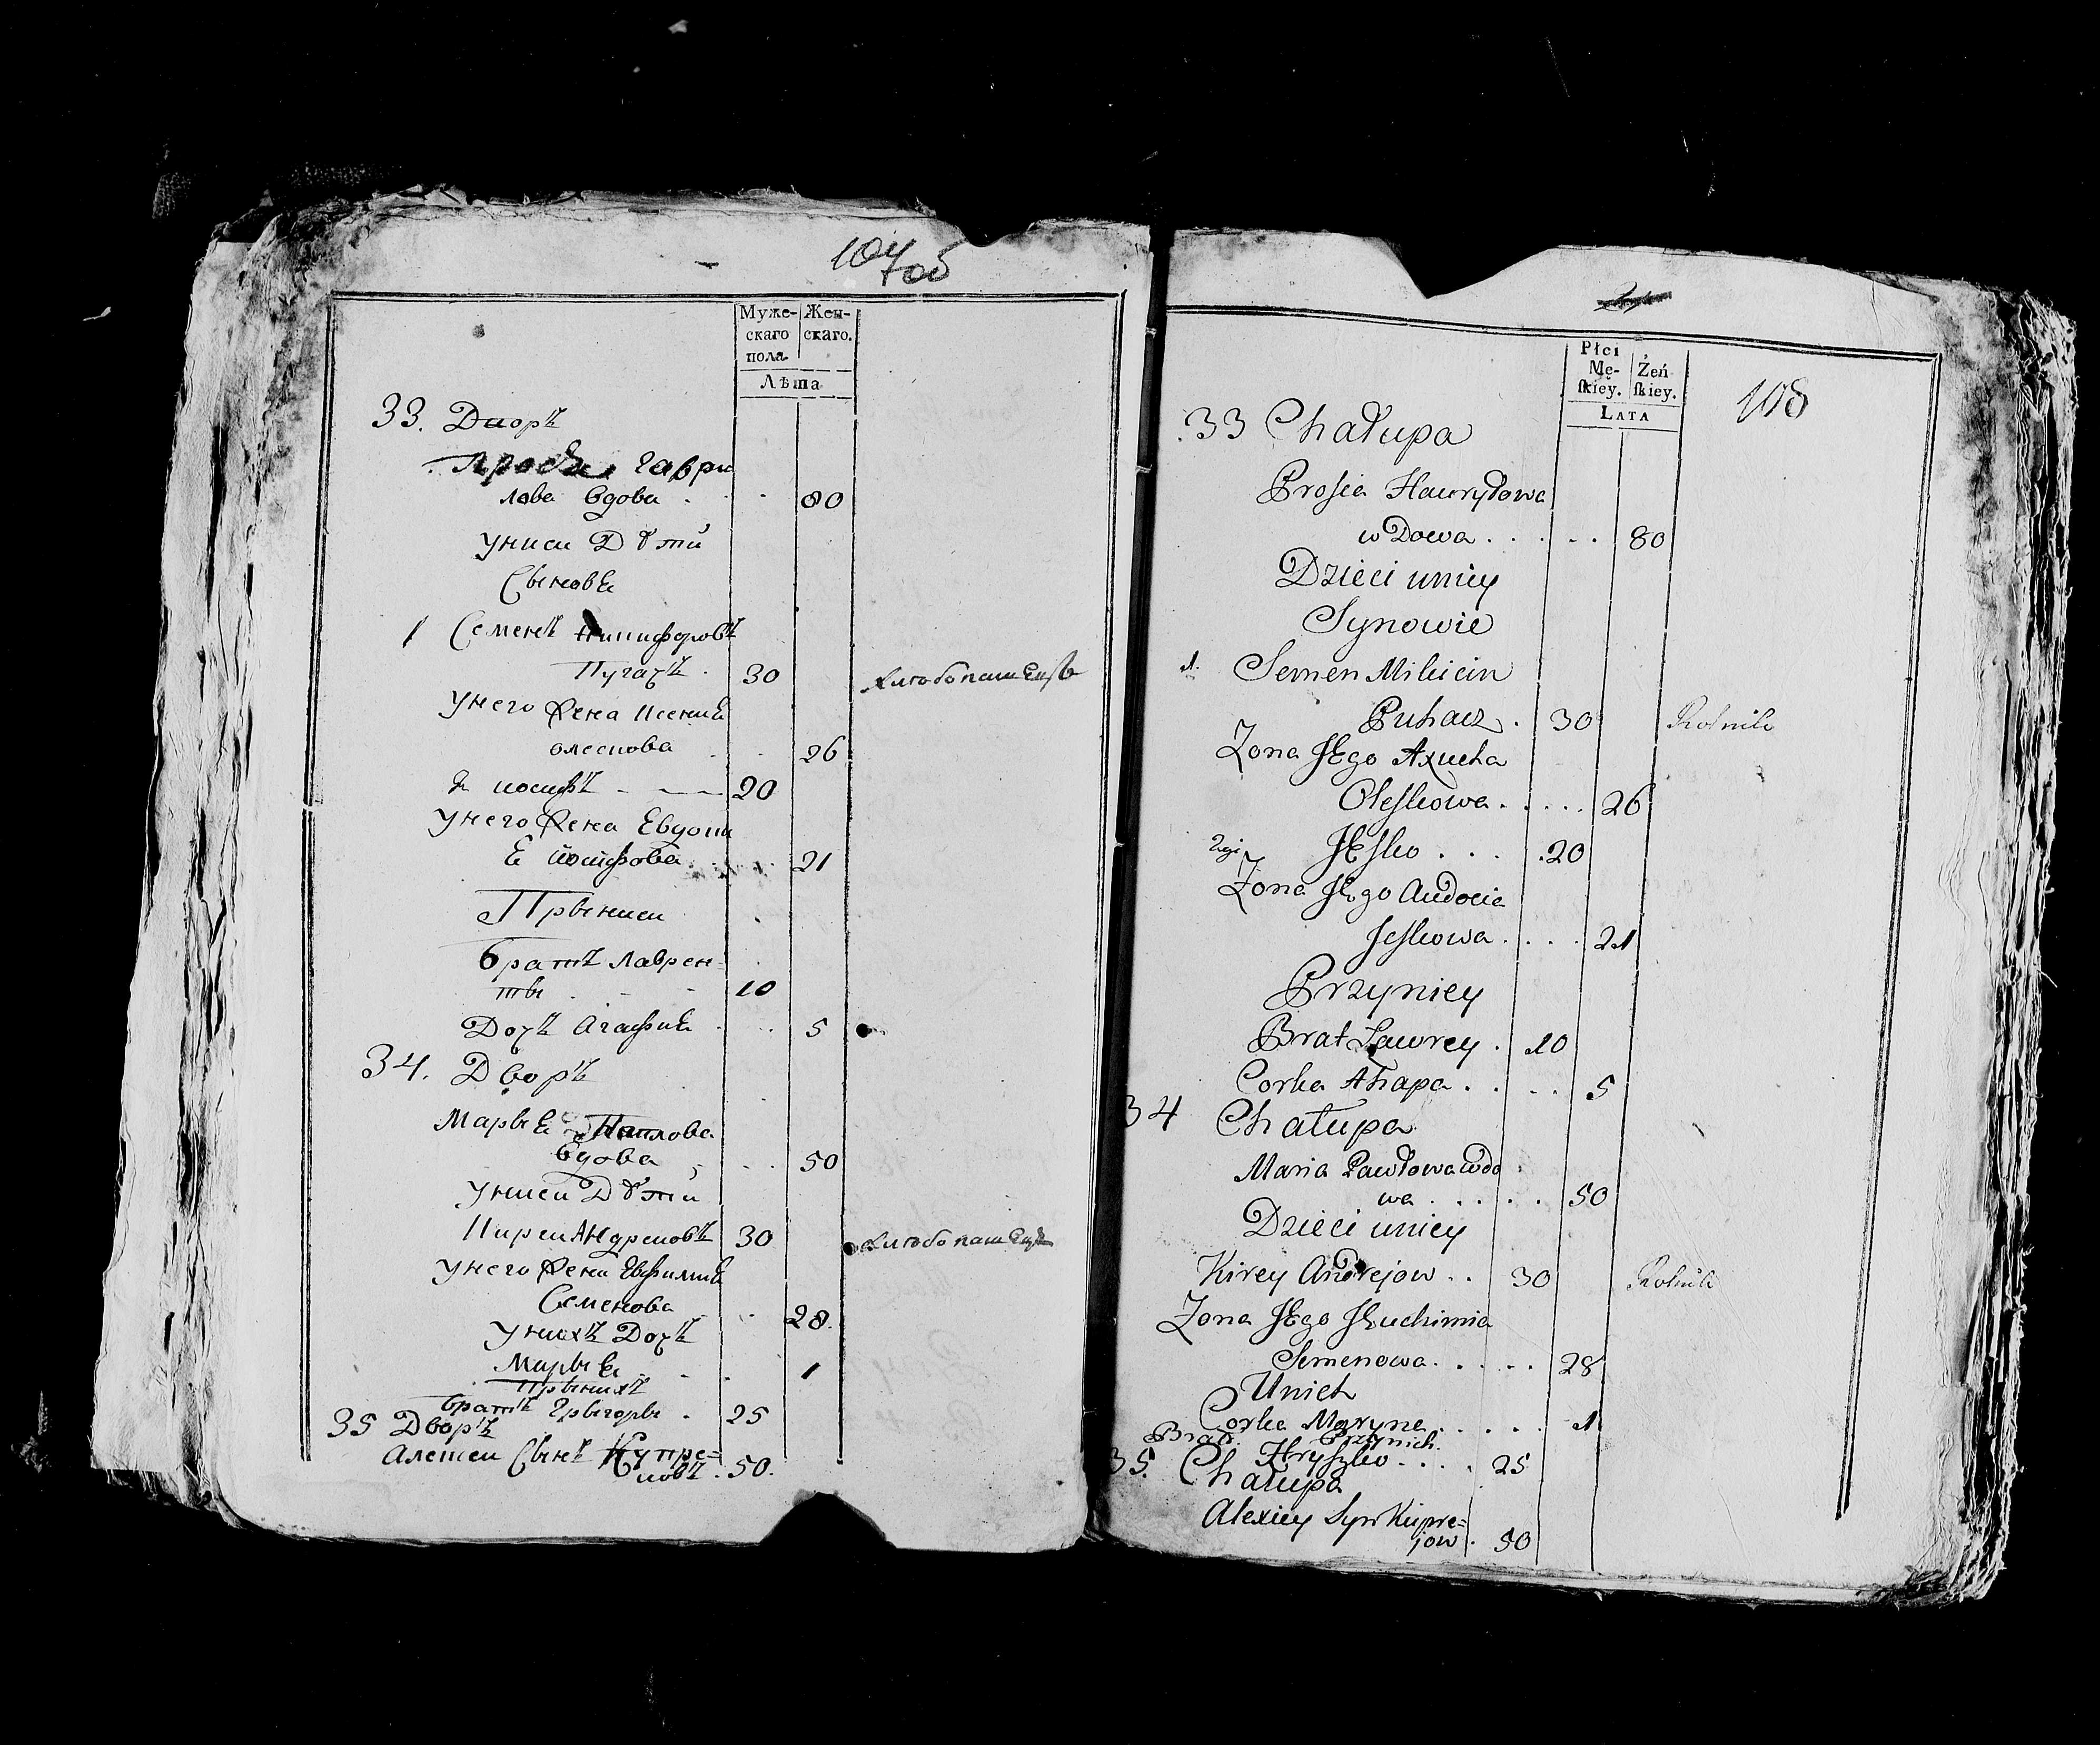 104 об
Муже-
скаго
пола
Жен-
скаго.
Лѣта
33. Дворъ
Гаври
лова вдова . . . 80
У ниеи Дѣти
Сыновя
1 Семенъ Никифоровъ
Пугачъ . 30 хлебопашецъ
У него жена Ксения
олескова . . 26
2 иосифъ - - - 20
У него жена Евдоки
я иосифова . . 21
При ниеи
братъ Лаврен-
ты . - - 10
Дочъ Агафия . . . 5
34. Дворъ
Марья Павлова
вдова . . . 50
У ниеи Дѣти
Кирей Андреиовъ 30 хлебопашецъ
У него жена Евфимия
Семенова . . . 28.
У нихъ Дочъ
Марья . . . 1
Прынихъ
братъ Грыгоры . 25
35 Дворъ
Алексеи Сынъ Купре=
иовъ . 50.
108
Płci
Mę-
ſkiey.
Żeń
ſkiey.
Lata
33 Chałupa
Prosia Hawryłowa
wdowa . . . . . 80
Dzieci uniey
Synowie
1. Semen Mikicin
Puhacz . 30 Rolnik
Zona JEgo Axucha
Oleskowa . . . . . 26
2gi JEsko . . . . 20
Zona JEgo Audocia
Jeskowa . . . . 21
Przyniey
Brat Ławrey . 10
Corka Ahapa . . . . 5
34 Chałupa
Maria Pawłowa wdo
wa . . . . . 50
Dzieci uniey
Kirey Andrejow . . 30 Rolnik
Zona JEgo JEuchimia
Semenowa . . . . . 28
Unich
Corka Maryna . . . . . 1
Brat Przynich
Hryszko . . . . 25
35. Chałupa
Alexiey Syn Kupre=
jow . 50